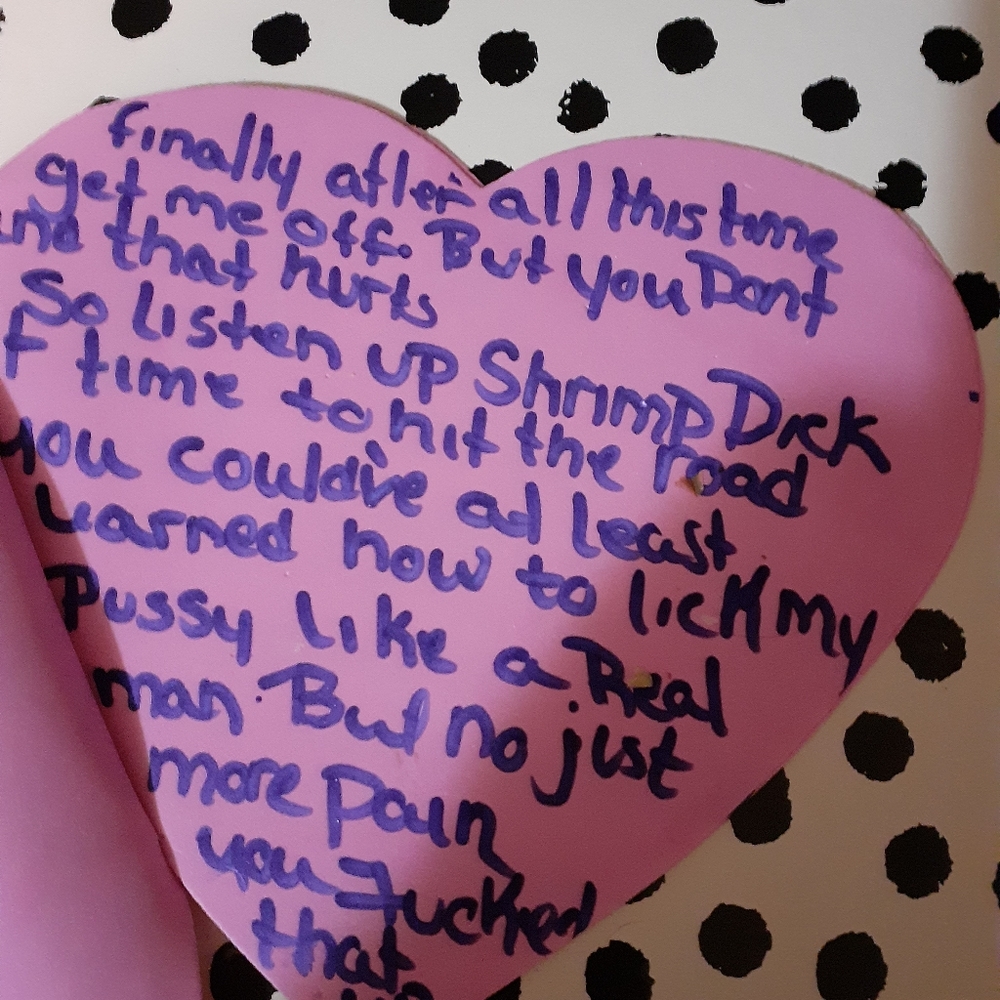 finally after all this time
get me off. But you Dont
and that hurts
So listen up Shrimp Dick
f time to hit the road
you could've ad least
Learned how to lick my
Pussy like a Real
man. But no just
more pain
you Fucked
that